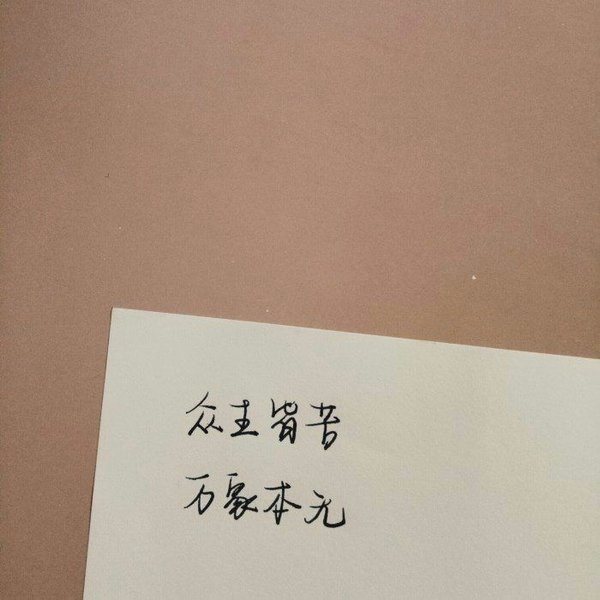 众生皆苦
万象本无